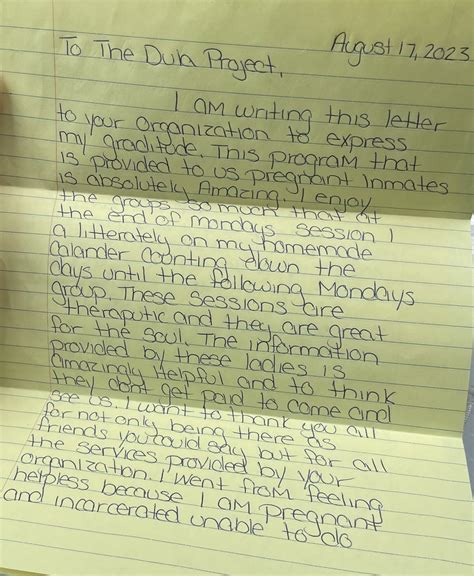 August 17, 2023
To The Duh Project,
I AM writing this letter
to your organization to express
my graditude. This program that
is provided to us pregnant Inmates
is absolutely Amazing. I enjoy
the groups so much that at
the end of mondays session I
a litterately on my homemade
Calander counting down the
days until the following Mondays
group. These sessions are
theraputic and they are great
for the soul. The information
provided by these ladies is
amazingly Helpful and to think
they dont get paid to come and
see us. I want to thank you all
for not only being there as
friends you could say but for all
the services provided by your
organization. I went from feeling
helpless because I AM pregnant
and incarcerated unable to do